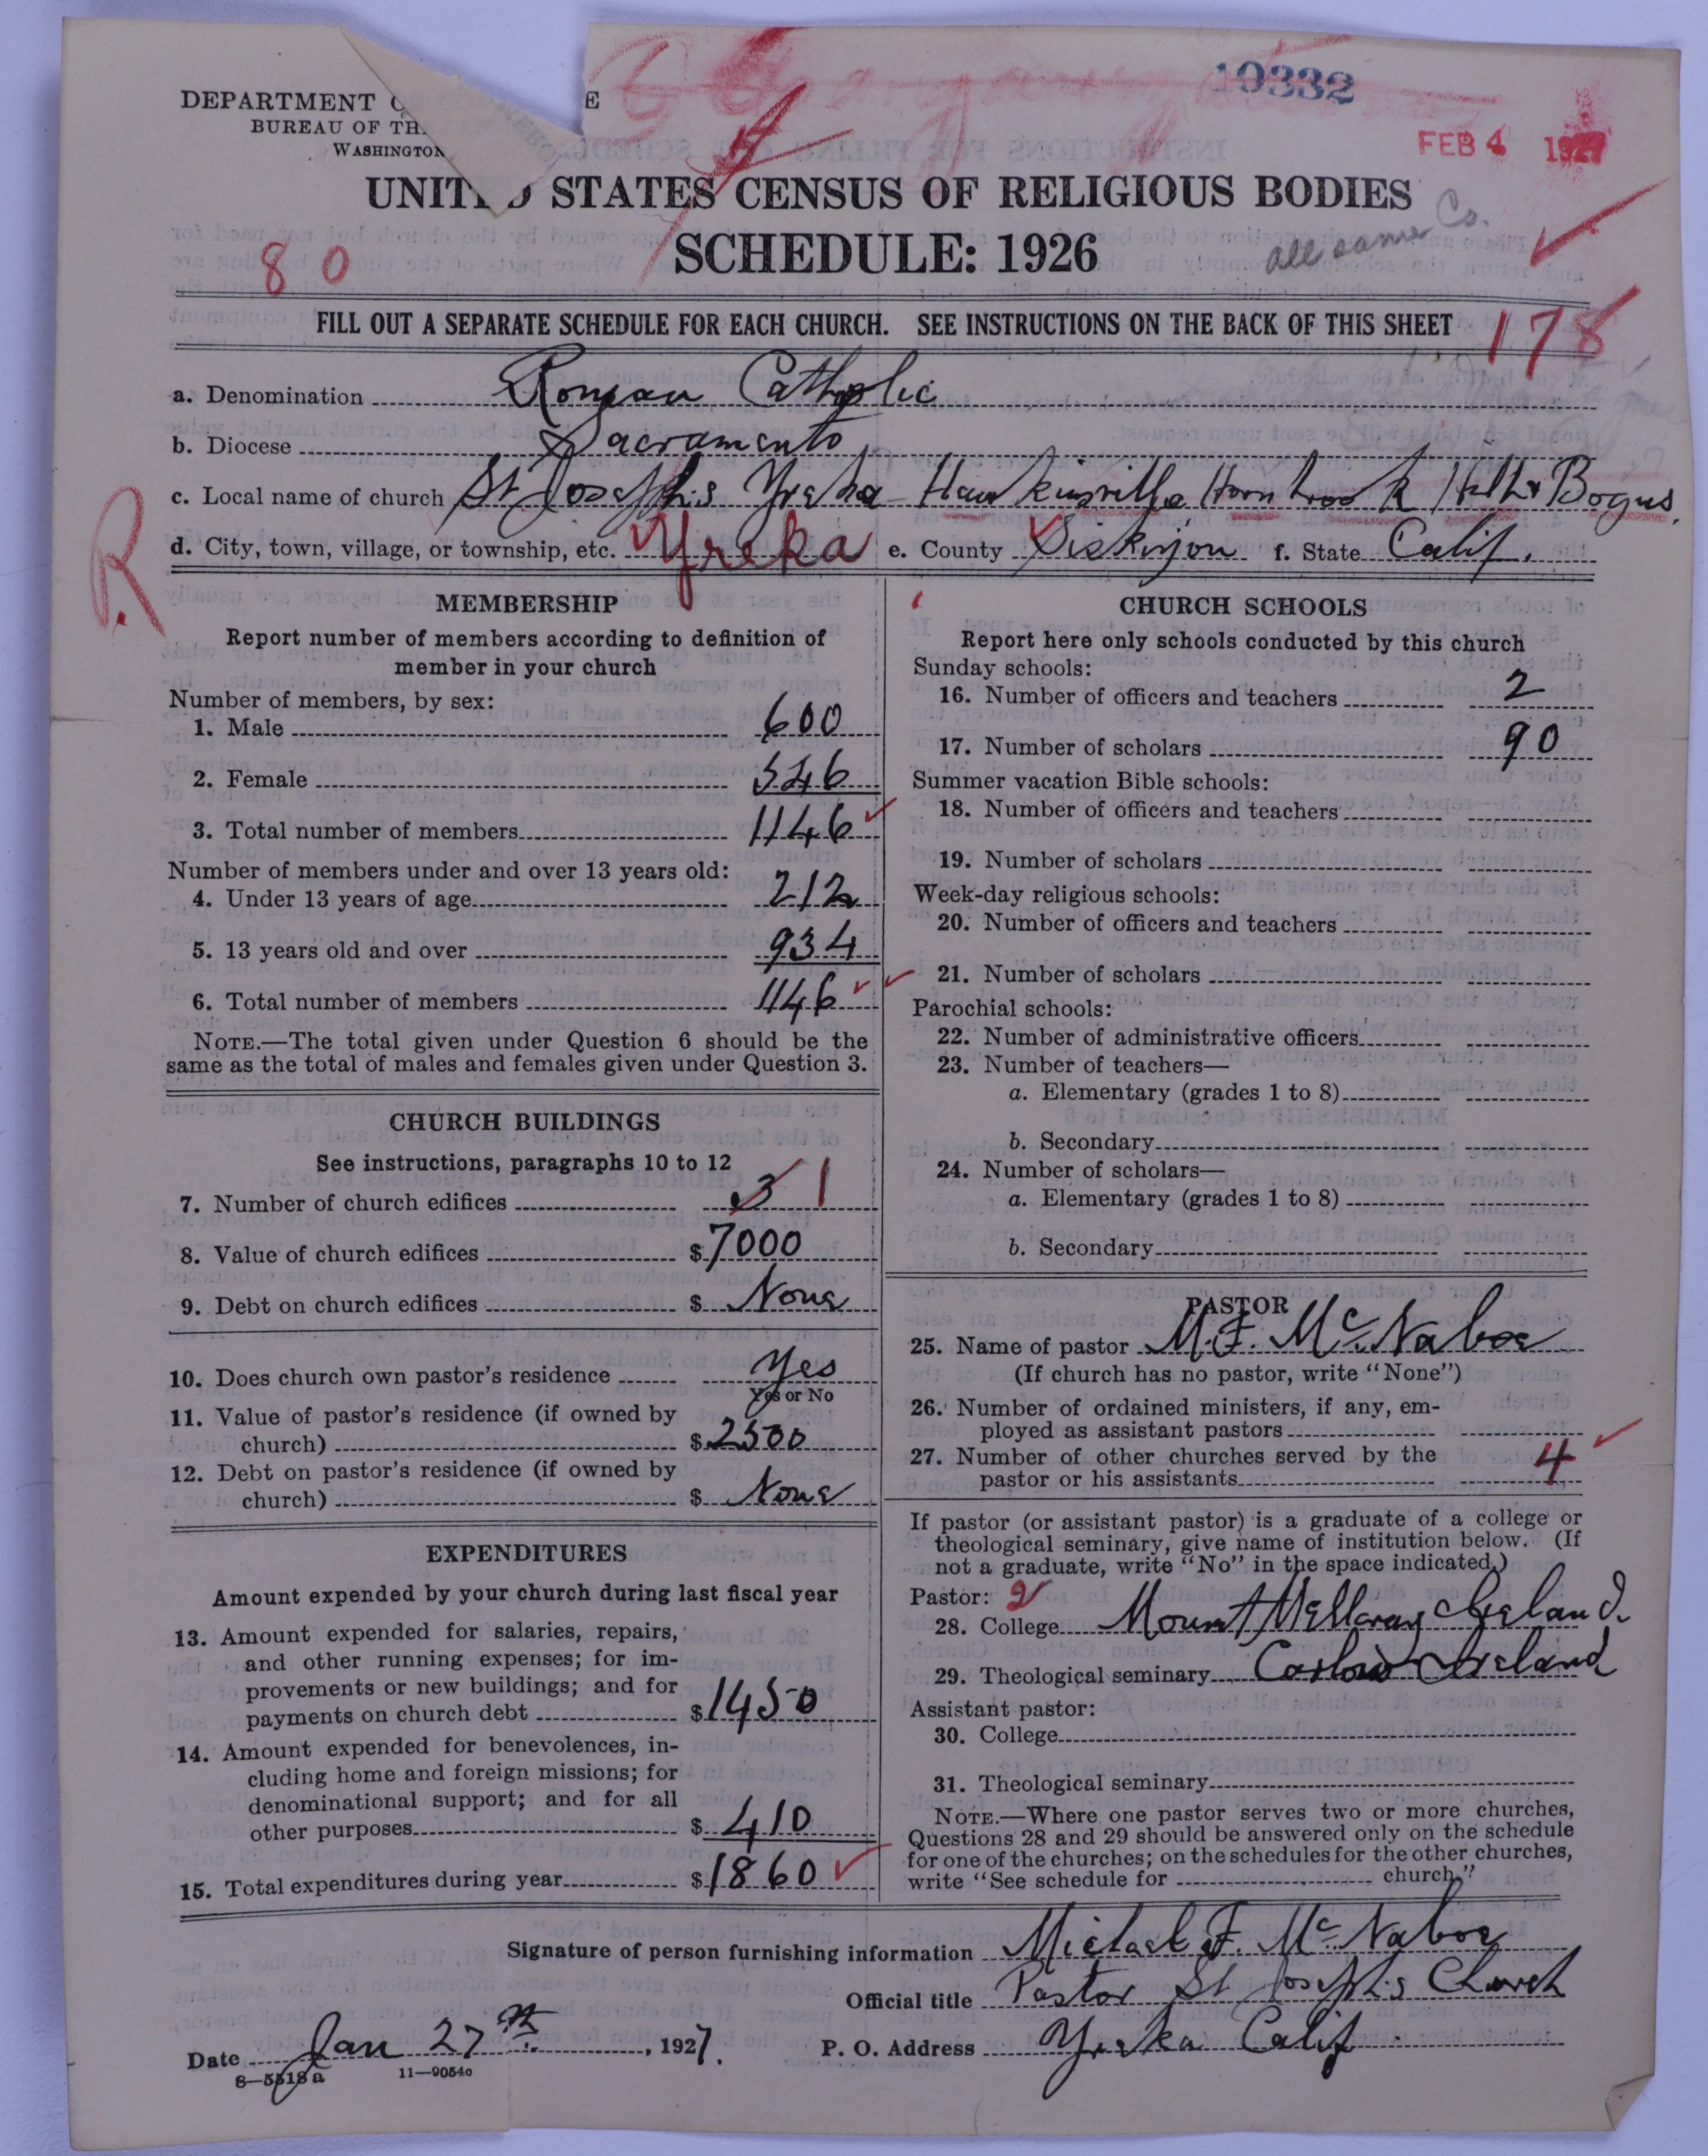 10332
DEPARTMENT O E
BUREAU OF TH
WASHINGTON
FEB 4 1927
UNITED STATES CENSUS OF RELIGIOUS BODIES
SCHEDULE: 1926
all same Co.
80
FILL OUT A SEPARATE SCHEDULE FOR EACH CHURCH. SEE INSTRUCTIONS ON THE BACK OF THIS SHEET
178
a. Denomination Roman Catholic
b. Diocese Sacramento
c. Local name of church St Josephs Yreka Hawkinsville Hornbrook Hilt & Bogus.
d. City, town, village, or township, etc. Yreka e. County Siskiyou f. State Calif.
R
MEMBERSHIP
Report number of members according to definition of
member in your church
Number of members, by sex:
1. Male 600
2. Female 546
3. Total number of members 1146
Number of members under and over 13 years old:
4. Under 13 years of age 212
5. 13 years old and over 934
6. Total number of members 1146
NOTE.—The total given under Question 6 should be the
same as the total of males and females given under Question 3.
CHURCH BUILDINGS
See instructions, paragraphs 10 to 12
7. Number of church edifices 3 1
8. Value of church edifices $ 7000
9. Debt on church edifices $ None
10. Does church own pastor's residence Yes
Yes or No
11. Value of pastor's residence (if owned by
church) $ 2500
12. Debt on pastor's residence (if owned by
church) $ None
EXPENDITURES
Amount expended by your church during last fiscal year
13. Amount expended for salaries, repairs,
and other running expenses; for im-
provements or new buildings; and for
payments on church debt $ 1450
14. Amount expended for benevolences, in-
cluding home and foreign missions; for
denominational support; and for all
other purposes $ 410
15. Total expenditures during year $ 1860
CHURCH SCHOOLS
Report here only schools conducted by this church
Sunday schools:
16. Number of officers and teachers 2
17. Number of scholars 90
Summer vacation Bible schools:
18. Number of officers and teachers
19. Number of scholars
Week-day religious schools:
20. Number of officers and teachers
21. Number of scholars
Parochial schools:
22. Number of administrative officers
23. Number of teachers—
a. Elementary (grades 1 to 8)
b. Secondary
24. Number of scholars—
a. Elementary (grades 1 to 8)
b. Secondary
PASTOR
25. Name of pastor M. F. McNaboe
(If church has no pastor, write "None")
26. Number of ordained ministers, if any, em-
ployed as assistant pastors
27. Number of other churches served by the
pastor or his assistants 4
If pastor (or assistant pastor) is a graduate of a college or
theological seminary, give name of institution below. (If
not a graduate, write "No" in the space indicated.)
Pastor: 2
28. College Mount Melleray Ireland.
29. Theological seminary Carlow Ireland
Assistant pastor:
30. College
31. Theological seminary
NOTE.—Where one pastor serves two or more churches,
Questions 28 and 29 should be answered only on the schedule
for one of the churches; on the schedules for the other churches,
write "See schedule for church."
Signature of person furnishing information Michael F. McNaboe
Official title Pastor St Josephs Church
Date Jan 27th, 1927. P. O. Address Yreka Calif
8—5518a 11—9054c